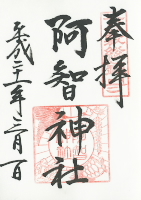 奉拝
阿智神社
平成二十一年三月一日